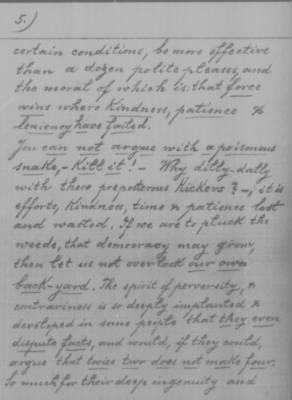 5.)
certain conditions, be more effective
than a dozen polite pleases, and
the moral of which is: that force
wins where kindness, patience &
leniency have failed.
You can not argue with a poisonous
snake, - Kill it! - Why dilly-dally
with these preposterous Kickers? -, it is
efforts, Kindness, time & patience lost
and wasted. If we are to pluck the
weeds, that democracy may grow,
then let us not overlook our own
back-yard. The spirit of perversity, &
contraviness is so deeply implanted &
developed in some people that they even
dispute facts, and would, if they could,
argue that twice two does not make four.
So much for their deep ingenuity and